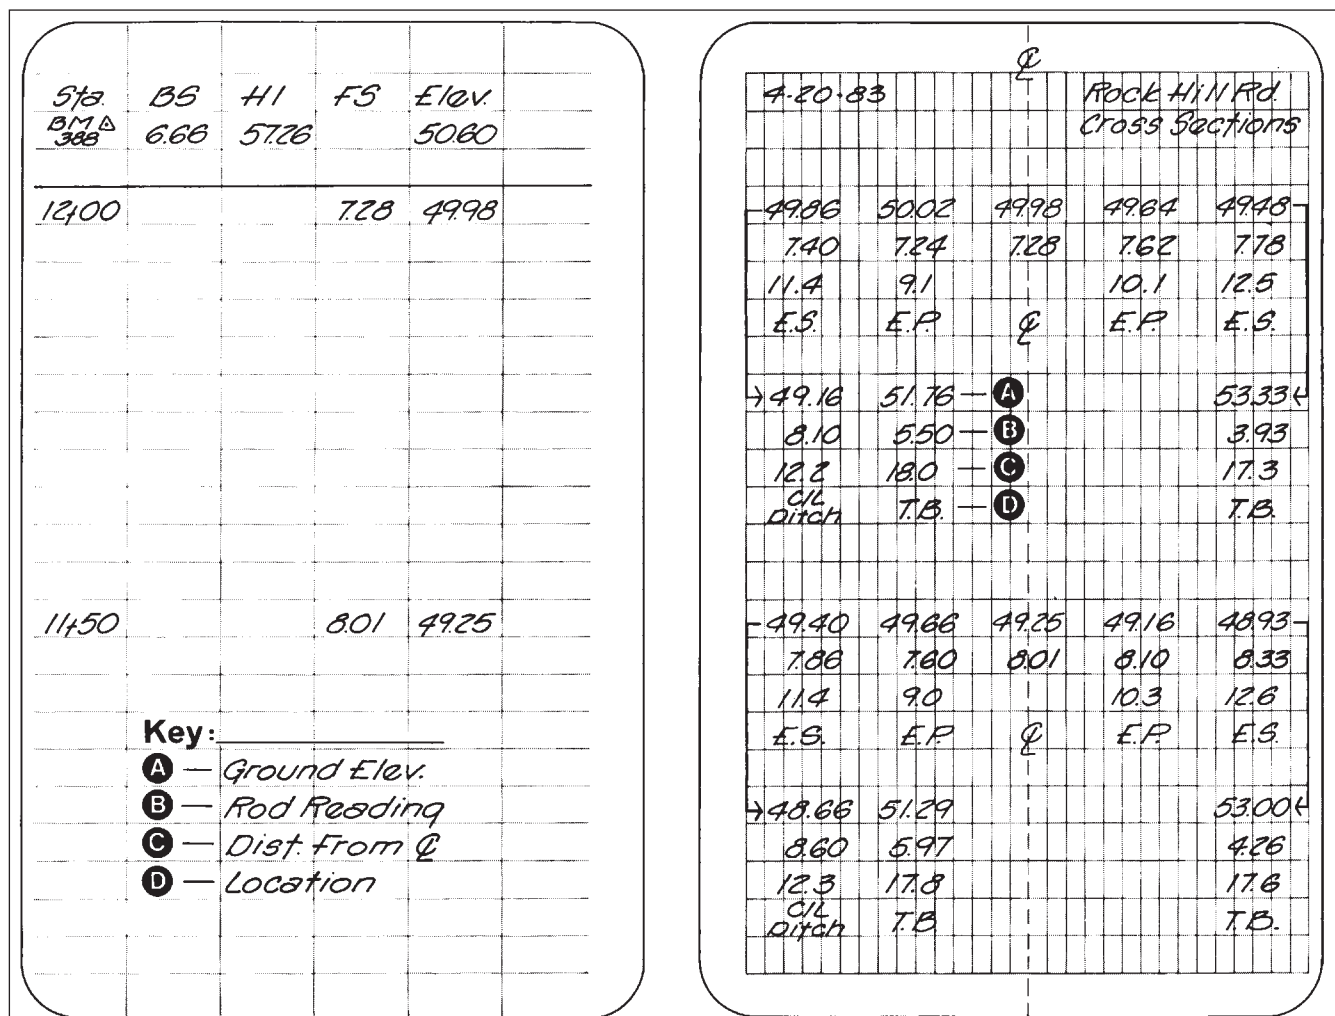 Sta. BS HI FS Elev.
B.M. △ 388 6.66 57.26 50.60
12+00 7.28 49.98
11+50 8.01 49.25
Key:
A — Ground Elev.
B — Rod Reading
C — Dist. From ℄
D — Location
℄
4-20-83 Rock Hill Rd.
Cross Sections
49.86 50.02 49.98 49.64 49.48
7.40 7.24 7.28 7.62 7.78
11.4 9.1 10.1 12.5
E.S. E.P. ℄ E.P. E.S.
49.16 51.76 — A 53.33
8.10 5.50 — B 3.93
12.2 18.0 — C 17.3
C/L Ditch T.B. — D T.B.
49.40 49.66 49.25 49.16 48.93
7.86 7.60 8.01 8.10 8.33
11.4 9.0 10.3 12.6
E.S. E.P. ℄ E.P. E.S.
48.66 51.29 53.00
8.60 5.97 4.26
12.3 17.8 17.6
C/L Ditch T.B. T.B.